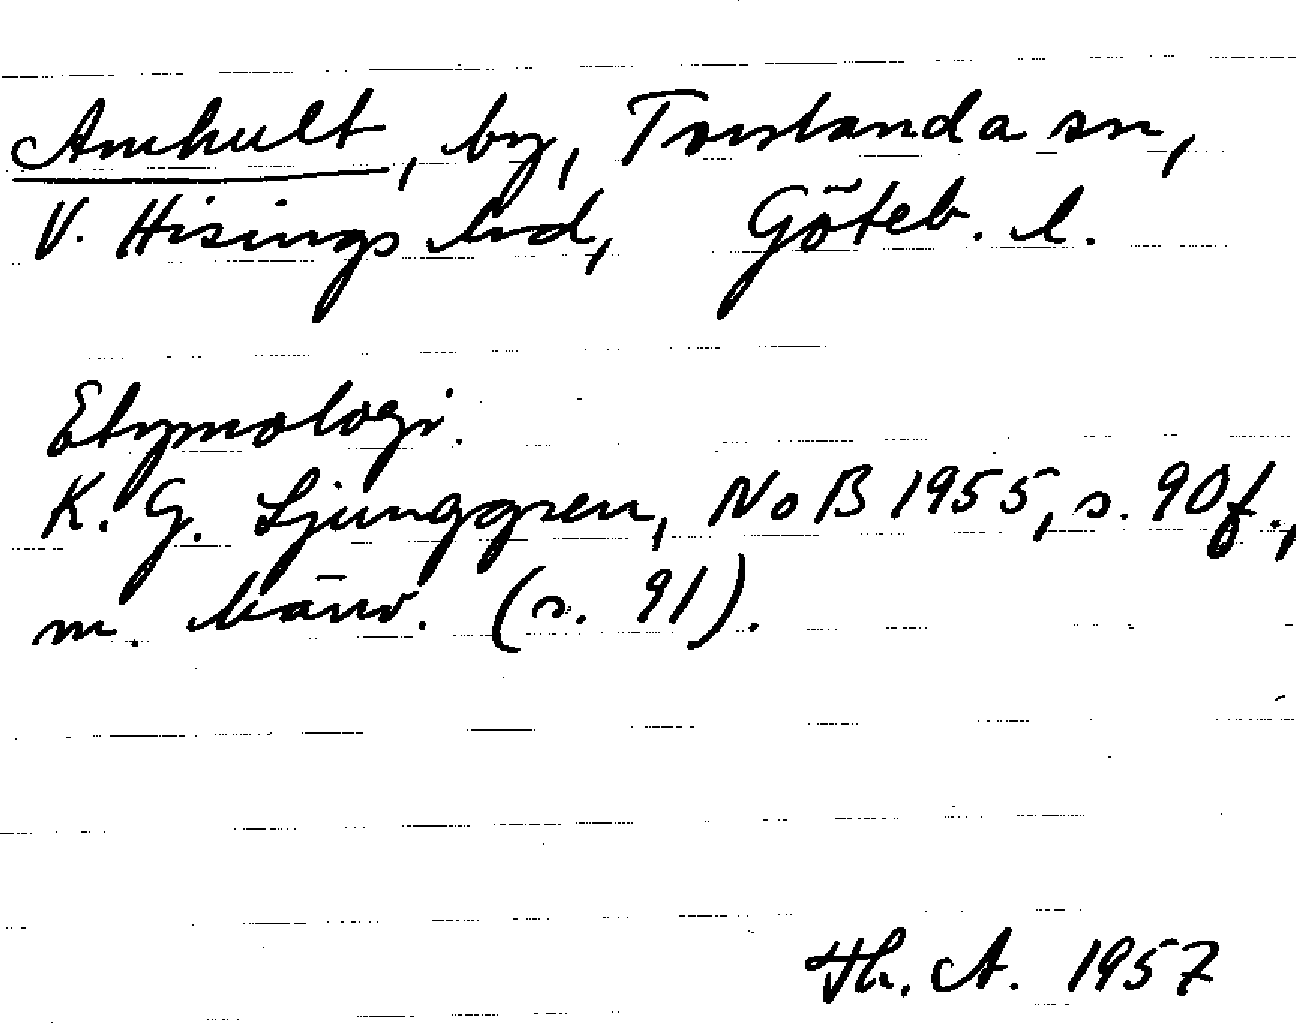 Amhult, by, Torslanda sn,
V. Hisings hd, Göteb. l.
Etymologi.
K. G. Ljunggren, NoB 1955, s. 90f.,
m. hänv. (s. 91).
Th. A. 1957